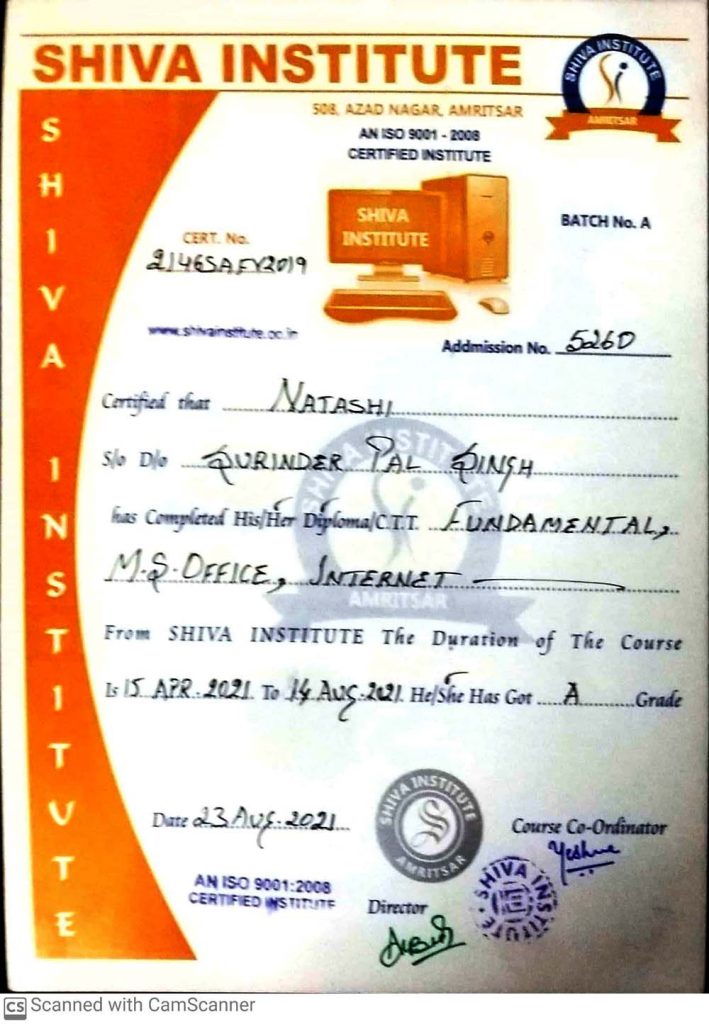 SHIVA INSTITUTE
SHIVA INSTITUTE
AMRITSAR
508, AZAD NAGAR, AMRITSAR
AN ISO 9001 - 2008
CERTIFIED INSTITUTE
SHIVA INSTITUTE
SHIVA
INSTITUTE
BATCH No. A
CERT. No.
2146SAFY2019
www.shivainstitute.co.in
Addmission No. 5260
Certified that NATASHI
S/o D/o GURINDER PAL SINGH
has Completed His/Her Diploma/C.T.T. FUNDAMENTAL,
M.S. OFFICE, INTERNET
SHIVA INSTITUTE
AMRITSAR
From SHIVA INSTITUTE The Duration of The Course
Is 15 APR. 2021 To 14 Aug. 2021 He/She Has Got A Grade
Date 23 Aug. 2021
SHIVA INSTITUTE
AMRITSAR
Course Co-Ordinator
Yeshue
AN ISO 9001:2008
CERTIFIED INSTITUTE
Director
SHIVA INSTITUTE
CS Scanned with CamScanner